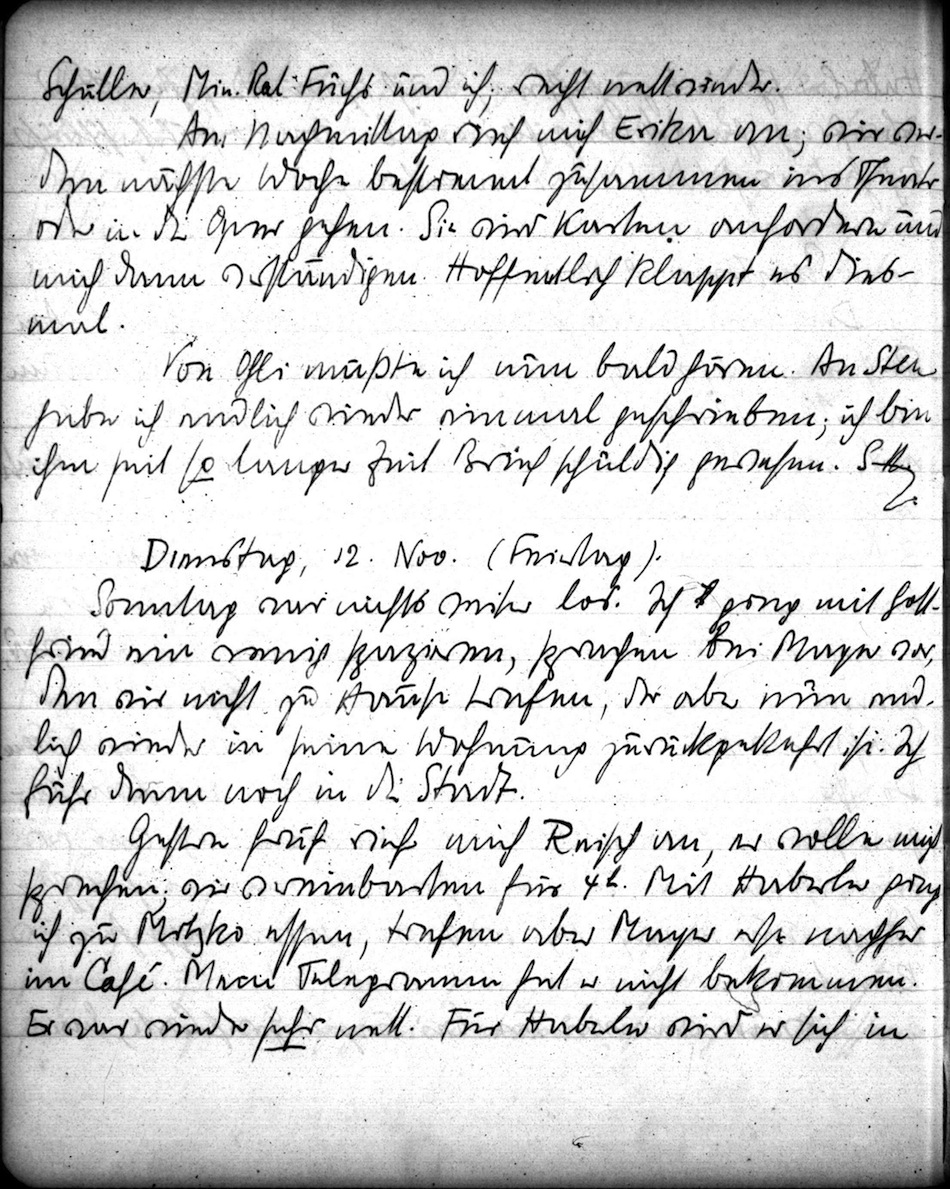 Schuller, Min. Rat Fuchs und ich, recht nett wieder.
Am Nachmittag rief mich Erika an; wir wer-
den nächste Woche bestimmt zusammen ins Theater
oder in die Oper gehen. Sie wird Karten anfordern und
mich dann verständigen. Hoffentlich klappt es dies-
mal.
Von Offi müßte ich nun bald hören. An Sten
habe ich endlich wieder einmal geschrieben; ich bin
ihm seit so langer Zeit Brief schuldig gewesen.
Dienstag, 12. Nov. (Feiertag).
Sonntag war nichts weiter los. Ich ging mit Gott-
fried ein wenig spazieren, sprachen bei Mayer vor,
den wir nicht zu Hause trafen, der aber nun end-
lich wieder in seine Wohnung zurückgekehrt ist. Ich
fuhr dann noch in die Stadt.
Gestern früh rief mich Reisch an, er wolle mich
sprechen; wir vereinbarten für 4h. Mit Haberler ging
ich zu Mitzko essen, trafen aber Mayer erst nachher
im Café. Mein Telegramm hat er nicht bekommen.
Er war wieder sehr nett. Für Haberler wird er sich in